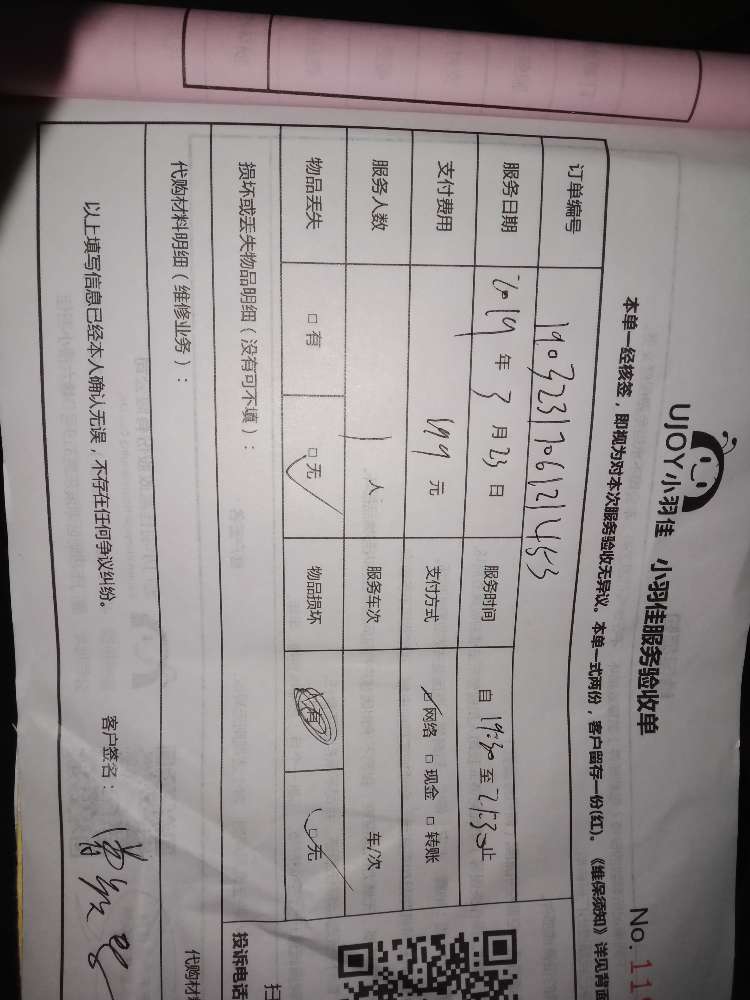 UJOY小羽佳 小羽佳服务验收单
No. 11
本单一经核签，即视为对本次服务验收无异议。本单一式两份，客户留存一份(红)。《维保须知》详见背面
订单编号 1903231706121453
服务日期 2019 年 3 月 23 日 服务时间 自 19:30 至 21:30 止
支付费用 199 元 支付方式 □网络 □现金 □转账
服务人数 1 人 服务车次 车/次
物品丢失 □有 □无 物品损坏 □有 □无
损坏或丢失物品明细（没有可不填）：
投诉电话
代购材料明细（维修业务）：
代购材
以上填写信息已经本人确认无误，不存在任何争议纠纷。 客户签名：